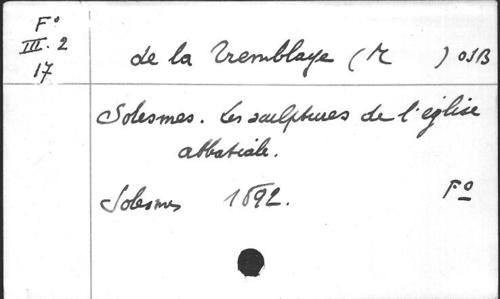 Fº
III. 2
17
de la Tremblaye (M ) OSB
Solesmes. Les sculptures de l'église
abbatiale.
Solesmes 1892. Fº